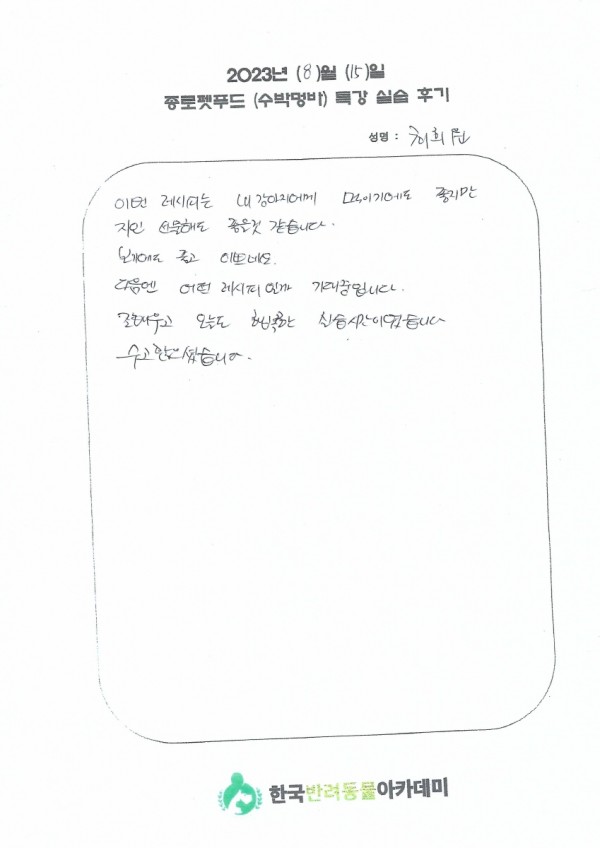 2023년 (8)월 (15)일
종로펫푸드 (수박멍바) 특강 실습 후기
성명 : 허희
이번 레시피는 내강아지에게 먹이기에도 좋지만
지인 선물해도 좋을것 같습니다.
보기에도 좋고 이쁘네요.
다음엔 어떤 레시피 일까 기대중입니다.
잘배우고 오늘도 행복한 실습시간이였습니다
수고하셨습니다.
한국반려동물아카데미